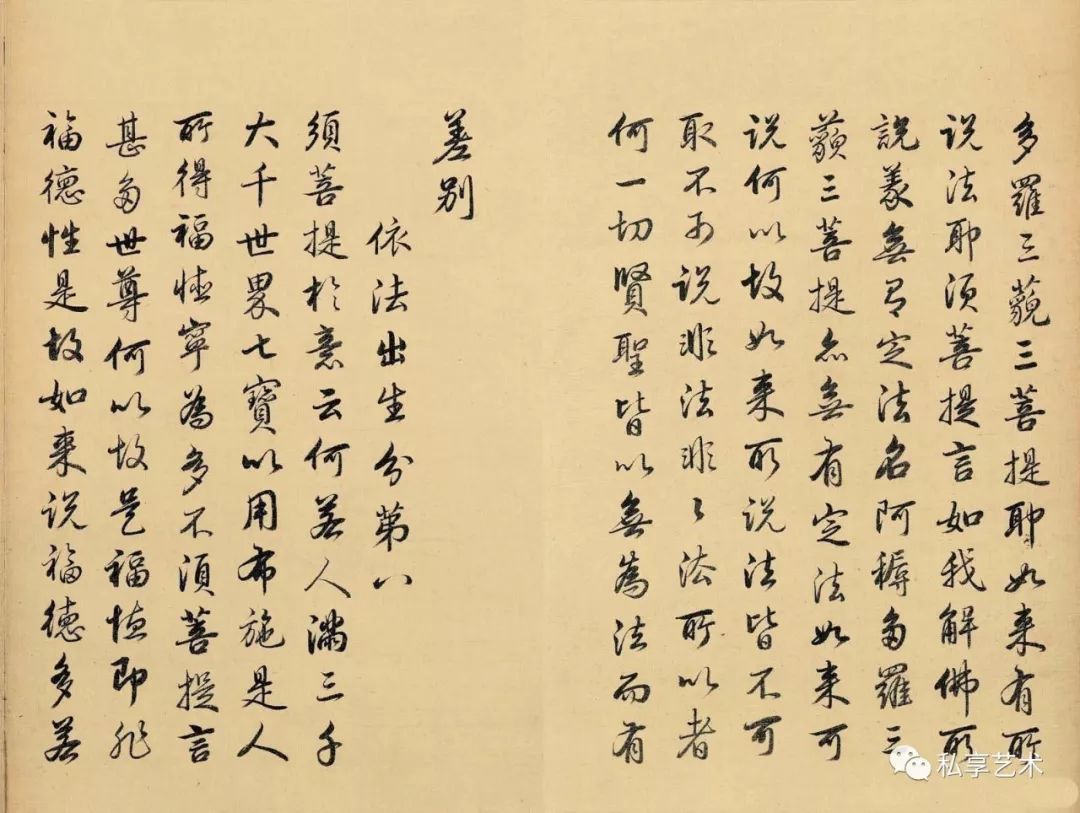 多羅三藐三菩提耶如来有所
说法耶須菩提言如我解佛所
說義無有定法名阿耨多羅三
藐三菩提亦無有定法如来可
说何以故如来所说法皆不可
取不可说非法非〻法所以者
何一切賢聖皆以無為法而有
差别
依法出生分第八
須菩提於意云何若人滿三千
大千世界七寶以用布施是人
所得福德寧為多不須菩提言
甚多世尊何以故是福德即非
福德性是故如来说福德多若
私享艺术